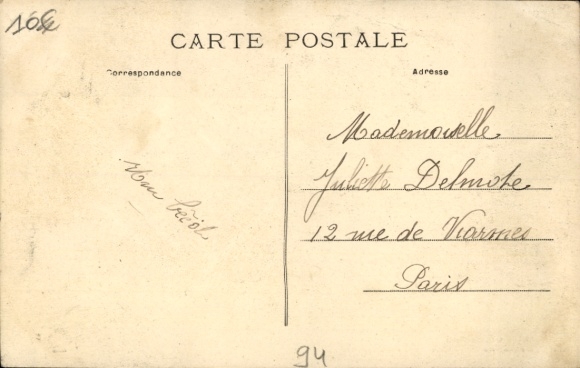 CARTE POSTALE
Correspondance
Adresse
Mademoiselle
Juliette Delmote
12 rue de Viarmes
Paris
94